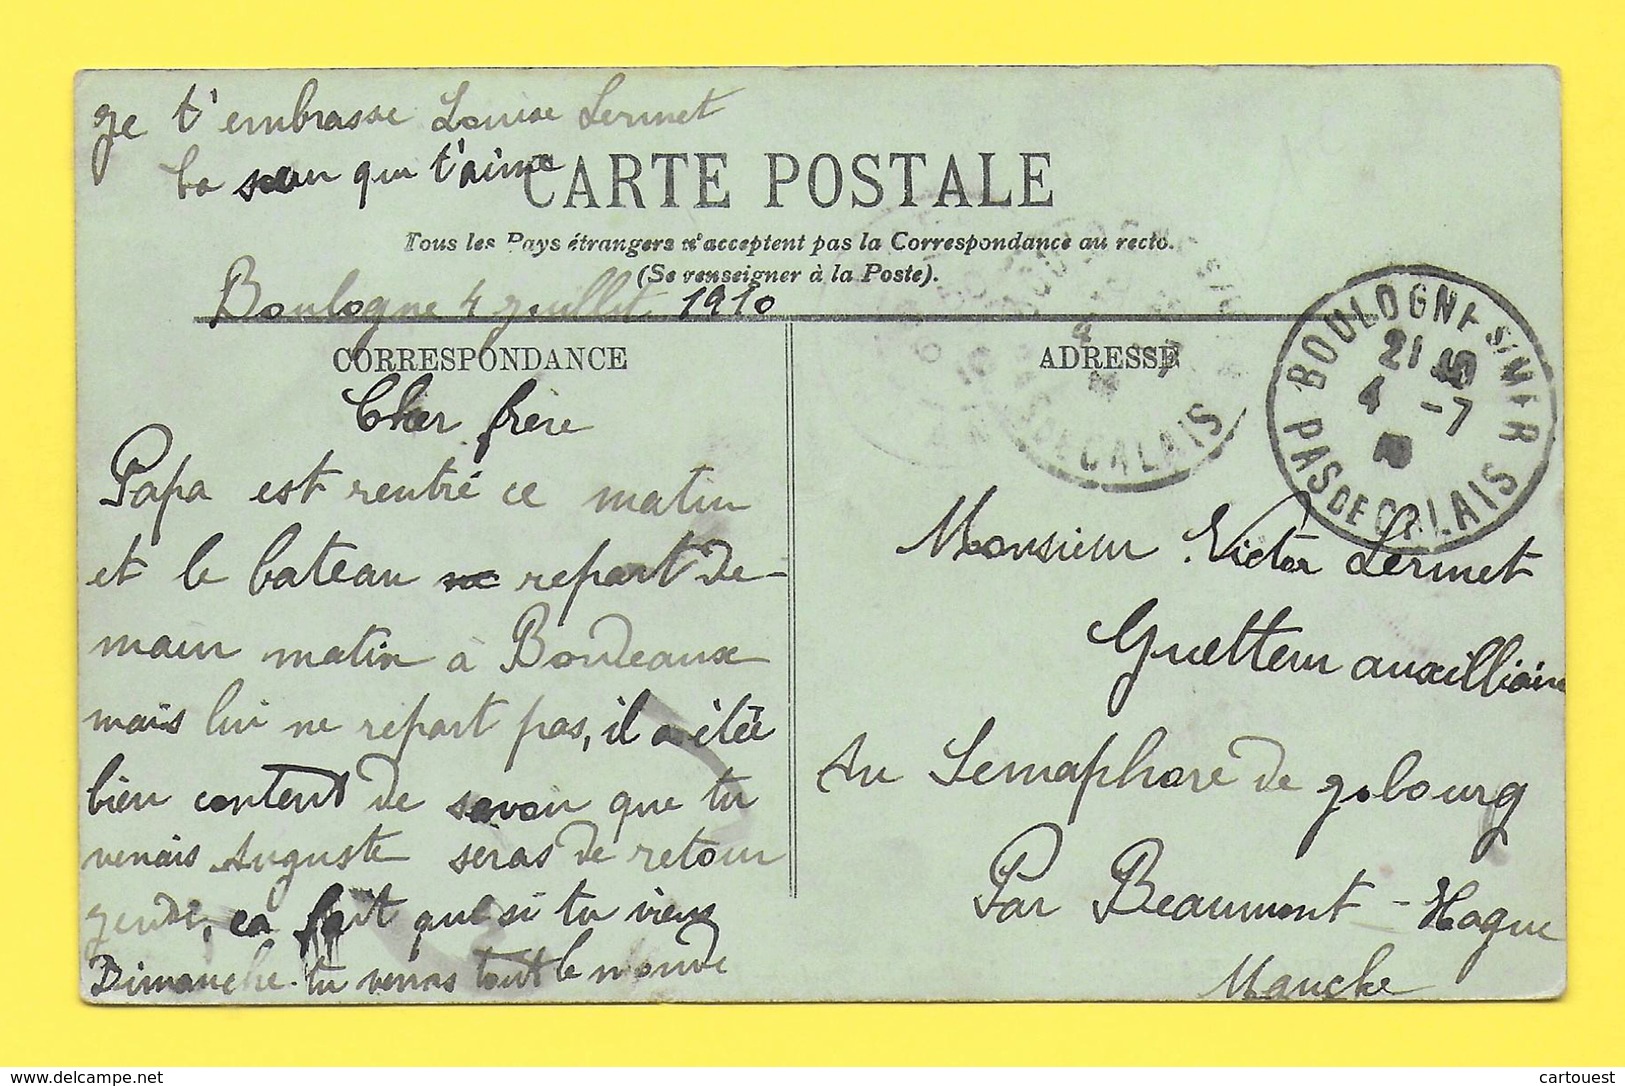 Je t'embrasse Louise Lermet
ta sœur qui t'aime
CARTE POSTALE
Tous les Pays étrangers n'acceptent pas la Correspondance au recto.
(Se renseigner à la Poste).
Boulogne 4 juillet 1910
CORRESPONDANCE
Cher frère
Papa est rentré ce matin
et le bateau repart de-
main matin à Bordeaux
mais lui ne repart pas, il a étée
bien content de savoir que tu
venais Auguste seras de retour
jeudi, ca fait que si tu viens
Dimanche tu verras tout le monde
ADRESSE
BOULOGNE S/MER
21
4 -7
PAS DE CALAIS
PAS DE CALAIS
Monsieur Victor Lermet
Guetteur auxilliaire
Au Semaphore de jobourg
Par Beaumont-Hague
Manche
https://www.delcampe.net
cartouest